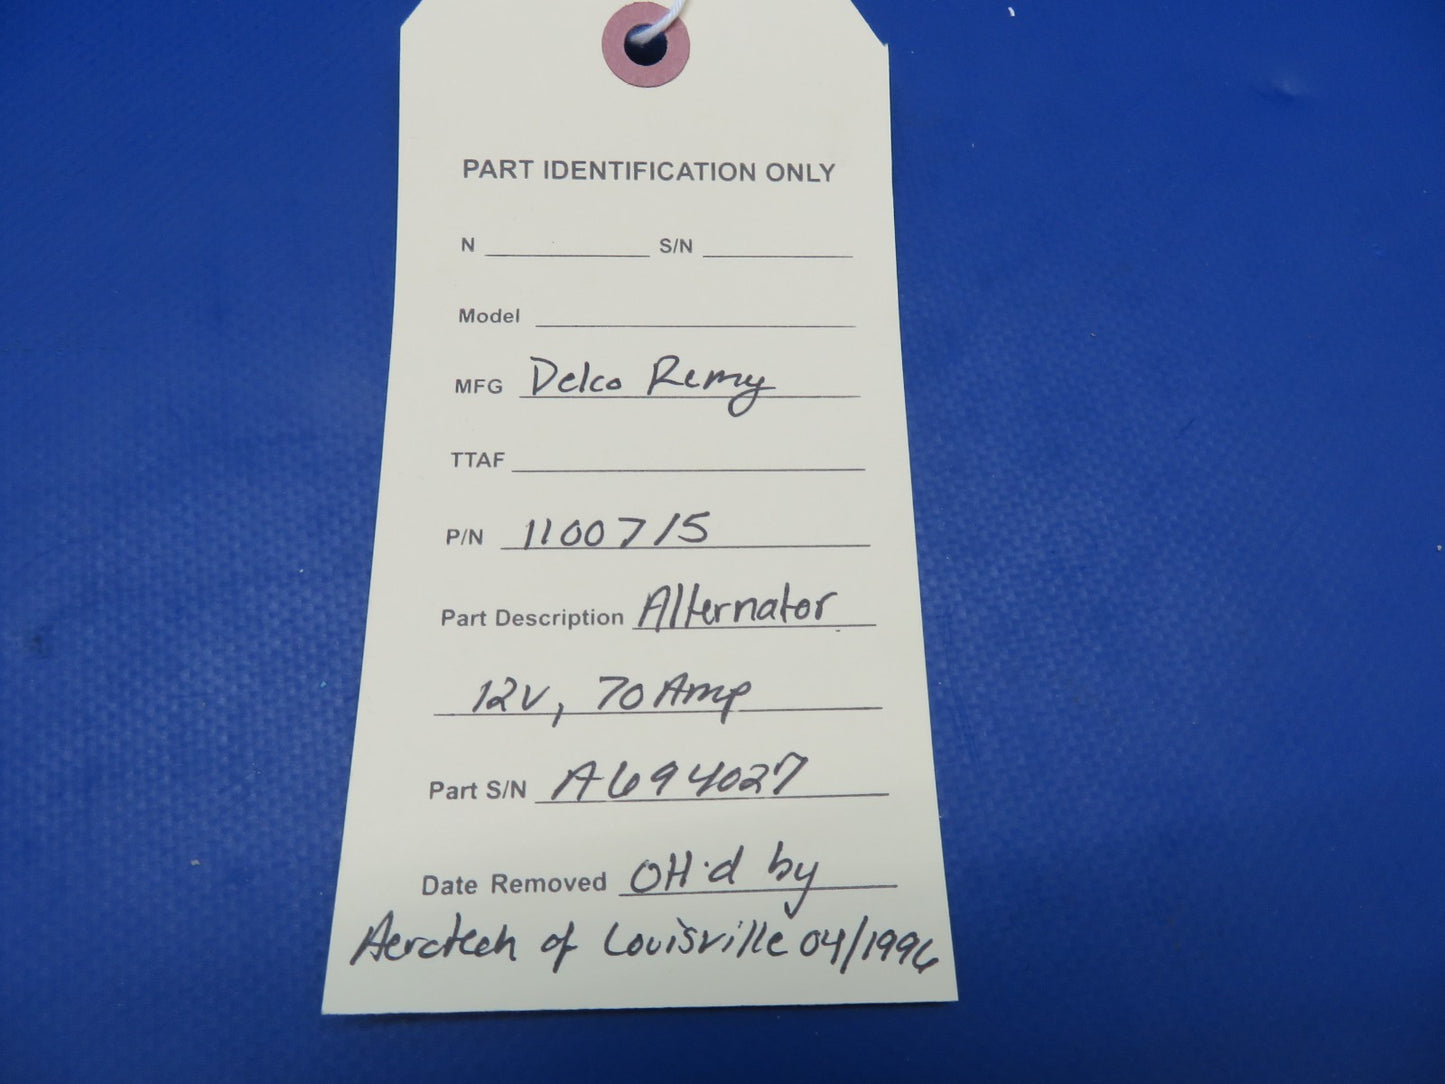 PART IDENTIFICATION ONLY
N S/N
Model
MFG Delco Remy
TTAF
P/N 1100715
Part Description Alternator
12V, 70 Amp
Part S/N A694027
Date Removed OH'd by
Aerotech of Louisville 04/1996